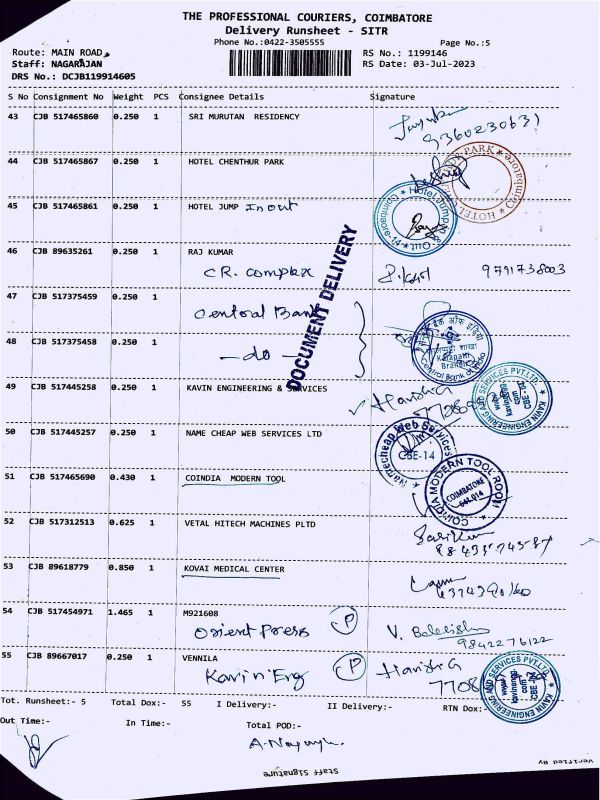 THE PROFESSIONAL COURIERS, COIMBATORE
Delivery Runsheet - SITR
Phone No.:0422-3505555 Page No.:5
Route: MAIN ROAD RS No.: 1199146
Staff: NAGARAJAN RS Date: 03-Jul-2023
DRS No.: DCJB119914605
S No Consignment No Weight PCS Consignee Details Signature
43 CJB 517465860 0.250 1 SRI MURUTAN RESIDENCY
9360230631
44 CJB 517465867 0.250 1 HOTEL CHENTHUR PARK
PARK * Coimbatore * HOTEL
45 CJB 517465861 0.250 1 HOTEL JUMP In out
* Hotel Jump In & Out * Coimbatore-14
46 CJB 89635261 0.250 1 RAJ KUMAR
CR. Complex 9791738003
47 CJB 517375459 0.250 1
Central Bank
48 CJB 517375458 0.250 1
- do -
DOCUMENT DELIVERY
Kalapatti
Branch
Central Bank of India
49 CJB 517445258 0.250 1 KAVIN ENGINEERING & SERVICES
Harisha
KAVIN ENGINEERING AND SERVICES PVT.LTD.
CBE-14
50 CJB 517445257 0.250 1 NAME CHEAP WEB SERVICES LTD
Namecheap Web Services
CBE-14
51 CJB 517465690 0.430 1 COINDIA MODERN TOOL
COINDIA MODERN TOOL ROOM
COIMBATORE
641 014
52 CJB 517312513 0.625 1 VETAL HITECH MACHINES PLTD
53 CJB 89618779 0.850 1 KOVAI MEDICAL CENTER
54 CJB 517454971 1.465 1 M921608
Orient Press P V.
9842276122
55 CJB 89667017 0.250 1 VENNILA
Kavin Eng P Harisha
7708
KAVIN ENGINEERING AND SERVICES PVT.LTD.
Tot. Runsheet:- 5 Total Dox:- 55 I Delivery:- II Delivery:- RTN Dox:-
Out Time:- In Time:- Total POD:-
Staff Signature Verified By